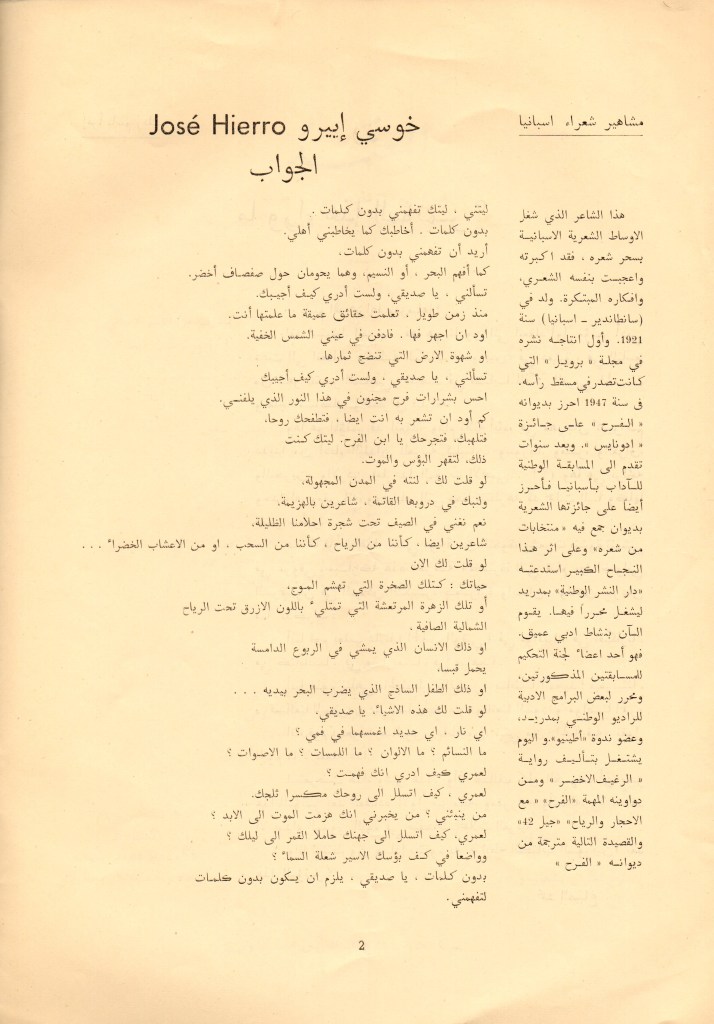 مشاهير شعراء اسبانيا
خوسي إييرو José Hierro
الجواب
هذا الشاعر الذي شغل
الاوساط الشعرية الاسبانية
بسحر شعره ، فقد اكبرته
واعجبست بنفسه الشعري،
وافكاره المبتكرة. ولد في
(سانطاندير ـ اسبانيا) سنة
1921. وأول انتاجه نشره
في مجلة « برويل» التي
كانت تصدر في مسقط رأسه.
فى سنة 1947 احرز بديوانه
« الفرح » على جائزة
« ادونايس ». وبعد سنوات
تقدم الى المسابقة الوطنية
للآداب بأسبانيا فأحرز
أيضا على جائزتها الشعرية
بديوان جمع فيه «منتخابات
من شعره» وعلى اثر هذا
النجاح الكبير استدعته
«دار النشر الوطنية» بمدريد
ليشغل محررا فيها. يقوم
الآن بنشاط ادبي عميق.
فهو أحد اعضاء لجنة التحكيم
للمسابقتين المذكورتين.
ومحرر لبعض البرامج الادبية
للراديو الوطني بمدريد،
وعضو ندوة «أطينيو». و اليوم
يشتغل بتأليف رواية
« الرغيف الاخضر » ومن
دواوينه المهمة «الفرح» « مع
الاحجار والرياح» «جيل 42»
والقصيدة التالية مترجمة من
ديوانه « الفرح »
ليتني ، ليتك تفهمني بدون كلمات .
بدون كلمات . أخاطبك كما يخاطبني أهلي.
أريد أن تفهمني بدون كلمات،
كما أفهم البحر ، أو النسيم، وهما يحومان حول صفصاف أخضر.
تسألني ، يا صديقي، ولست أدري كيف أجيبك.
منذ زمن طويل ، تعلمت حقائق عميقة ما علمتها أنت.
اود ان اجهر فها . فادفن في عيني الشمس الخفية.
او شهوة الارض التي تنضج ثمارها.
تسألني ، يا صديقي ، ولست أدري كيف أجيبك
احس بشرارات فرح مجنون في هذا النور الذي يلفني.
كم أود ان تشعر به انت ايضا ، فتطفحك روحا،
فتلهبك، فتجرحك يا ابن الفرح. ليتك كنت
ذلك، لتقهر البؤس والموت.
لو قلت لك ، لنته في المدن المجهولة،
ولنبك في دروبها القاتمة ، شاعرين بالهزيمة.
نعم نغني في الصيف تحت شجرة احلامنا الظليلة،
شاعرين ايضا ، كأننا من الرياح ، كأننا من السحب ، او من الاعشاب الخضراء . . .
لو قلت لك الان
حياتك : كتلك الصخرة التي تهشم الموج،
أو تلك الزهرة المرتعشة التي تمتلىء باللون الازرق تحت الرياح
الشمالية الصافية .
او ذلك الانسان الذي يمشي في الربوع الدامسة
يحمل قبسا.
او ذلك الطفل الساذج الذي يضرب البحر بيديه . . .
لو قلت لك هذه الاشياء، يا صديقي.
اي نار ، اي حديد اغمسهما في فمي ؟
ما النسائم ؟ ما الالوان ؟ ما اللمسات ؟ ما الاصوات ؟
لعمري كيف ادري انك فهمت ؟
لعمري ، كيف اتسلل الى روحك مكسرا ثلجك.
من ينبئني ؟ من يخبرني انك هزمت الموت الى الابد ؟
لعمري، كيف اتسلل الى جهنك حاملا القمر الى ليلك ؟
وواضعا في كف بؤسك الاسير شعلة السماء ؟
بدون كلمات ، يا صديقي ، يلزم ان يكون بدون كلمات
لتفهمني.
2